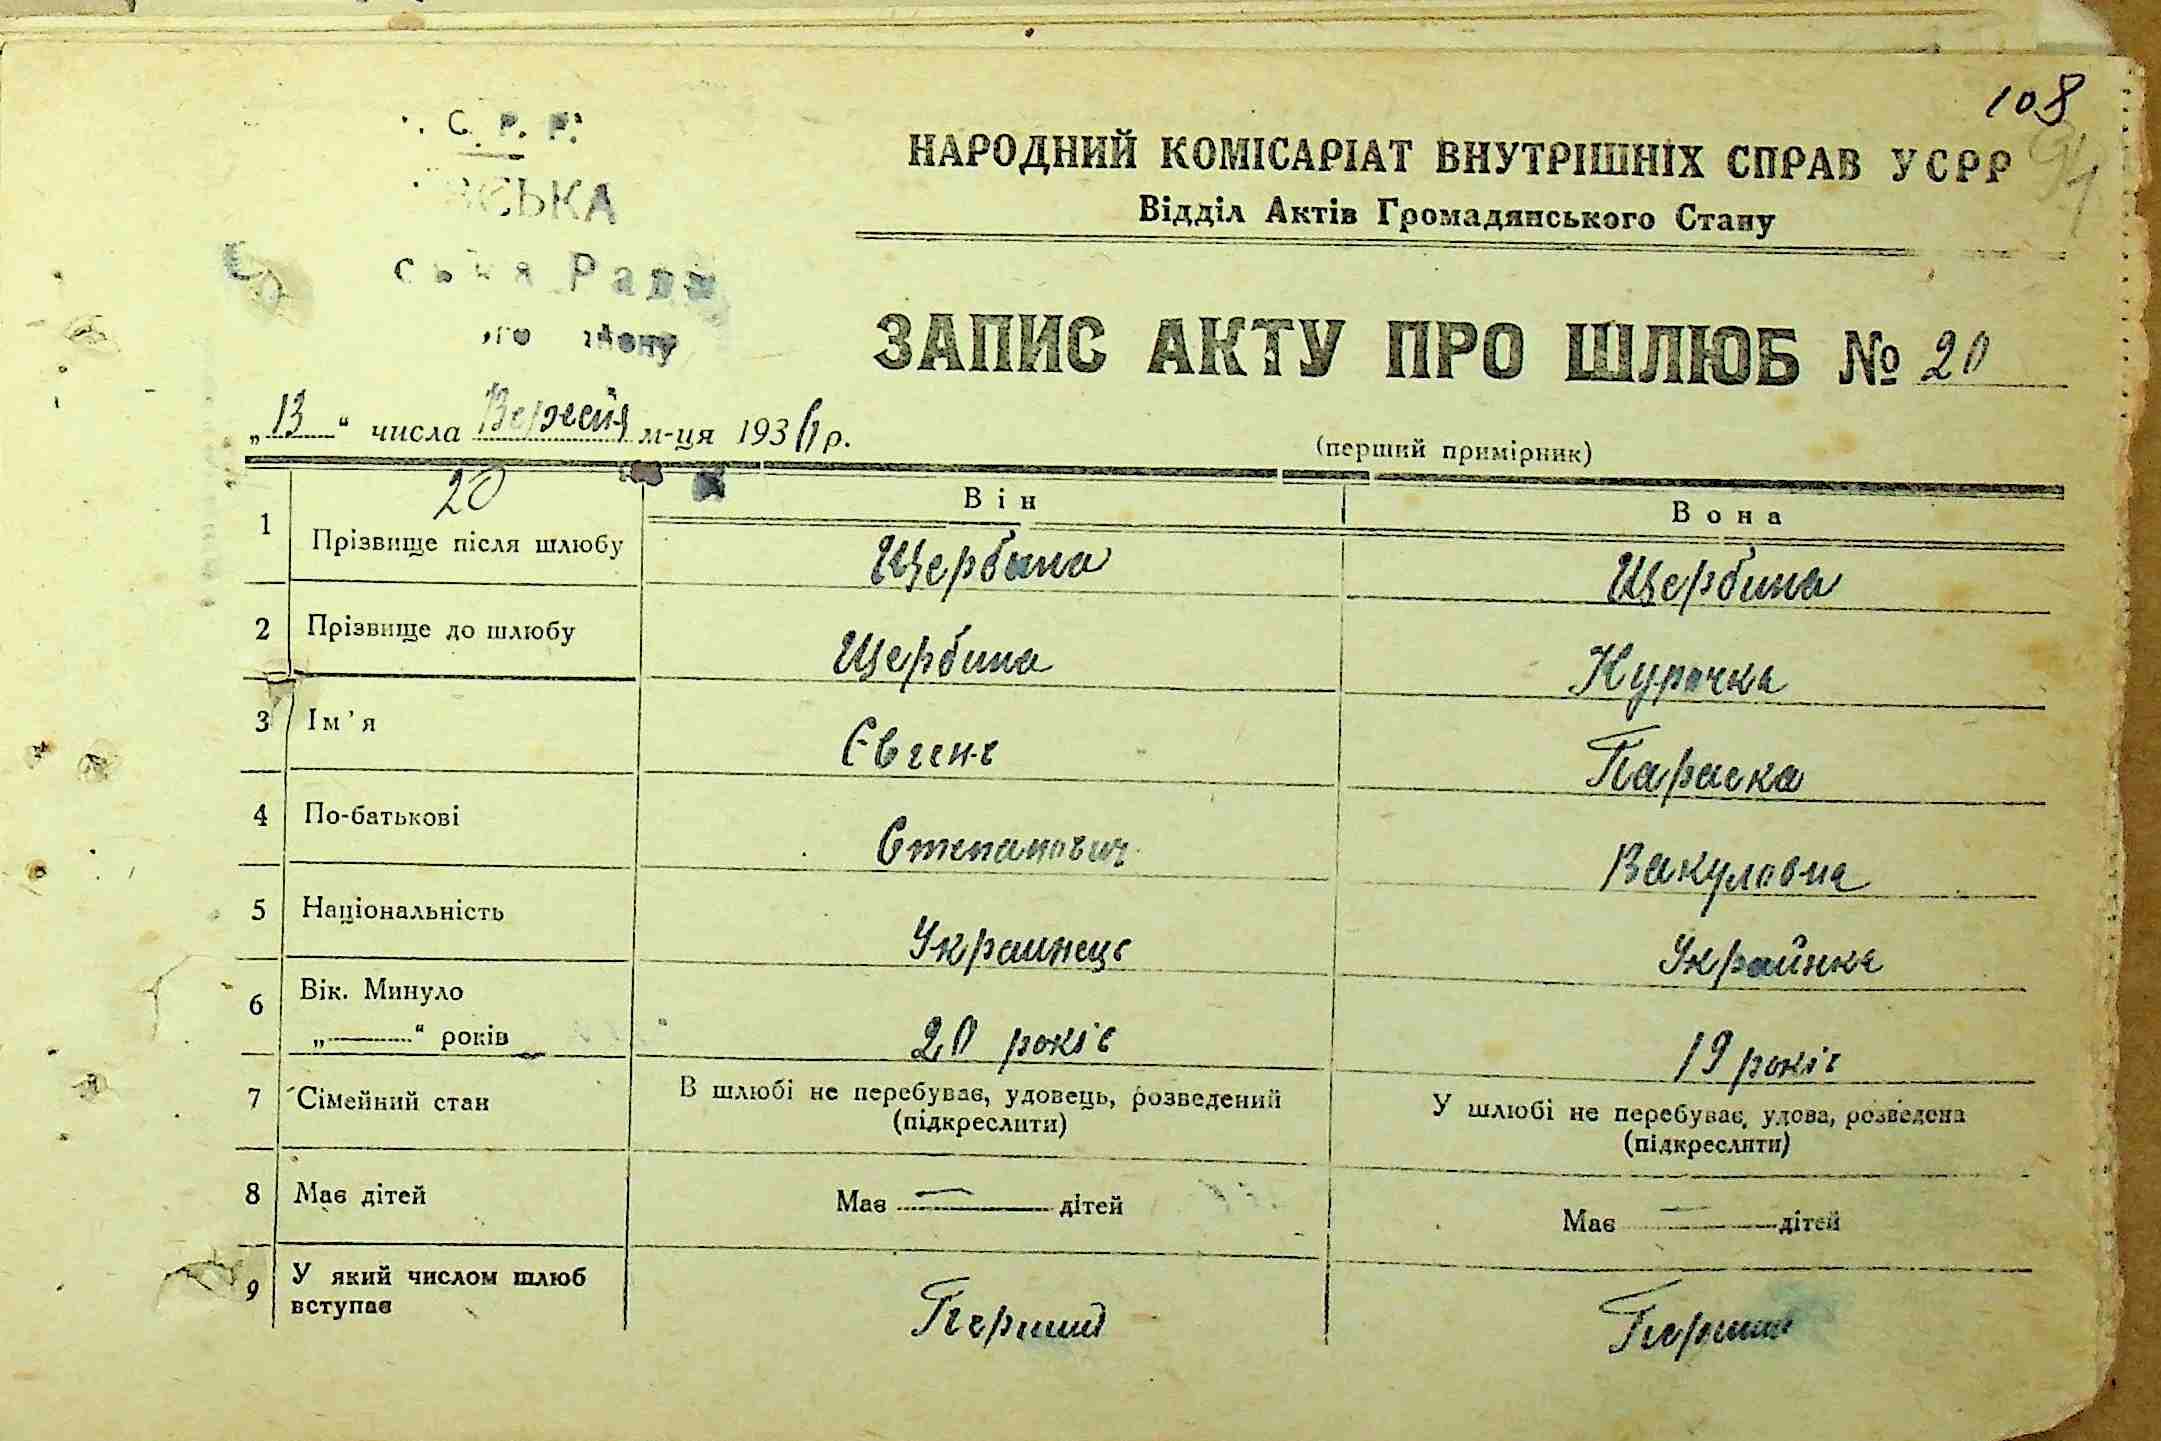 108
91
С. Р. Р.
СЬКА
Рада
НАРОДНИЙ КОМІСАРІАТ ВНУТРІШНІХ СПРАВ УСРР
Відділ Актів Громадянського Стану
ЗАПИС АКТУ ПРО ШЛЮБ № 20
„13“ числа Вересня м-ця 1936 р.
(перший примірник)
20
Він Вона
1 Прізвище після шлюбу Щербина Щербина
2 Прізвище до шлюбу Щербина Курочка
3 Ім’я Євгень Параска
4 По-батькові Степанович Вакуловна
5 Національність Украинець Украйнка
6 Вік. Минуло
„———“ років 20 років 19 років
7 Сімейний стан В шлюбі не перебуває, удовець, розведений У шлюбі не перебуває, удова, розведена
(підкреслити) (підкреслити)
8 Має дітей Має — дітей Має — дітей
9 У який числом шлюб
вступає Перший Перший